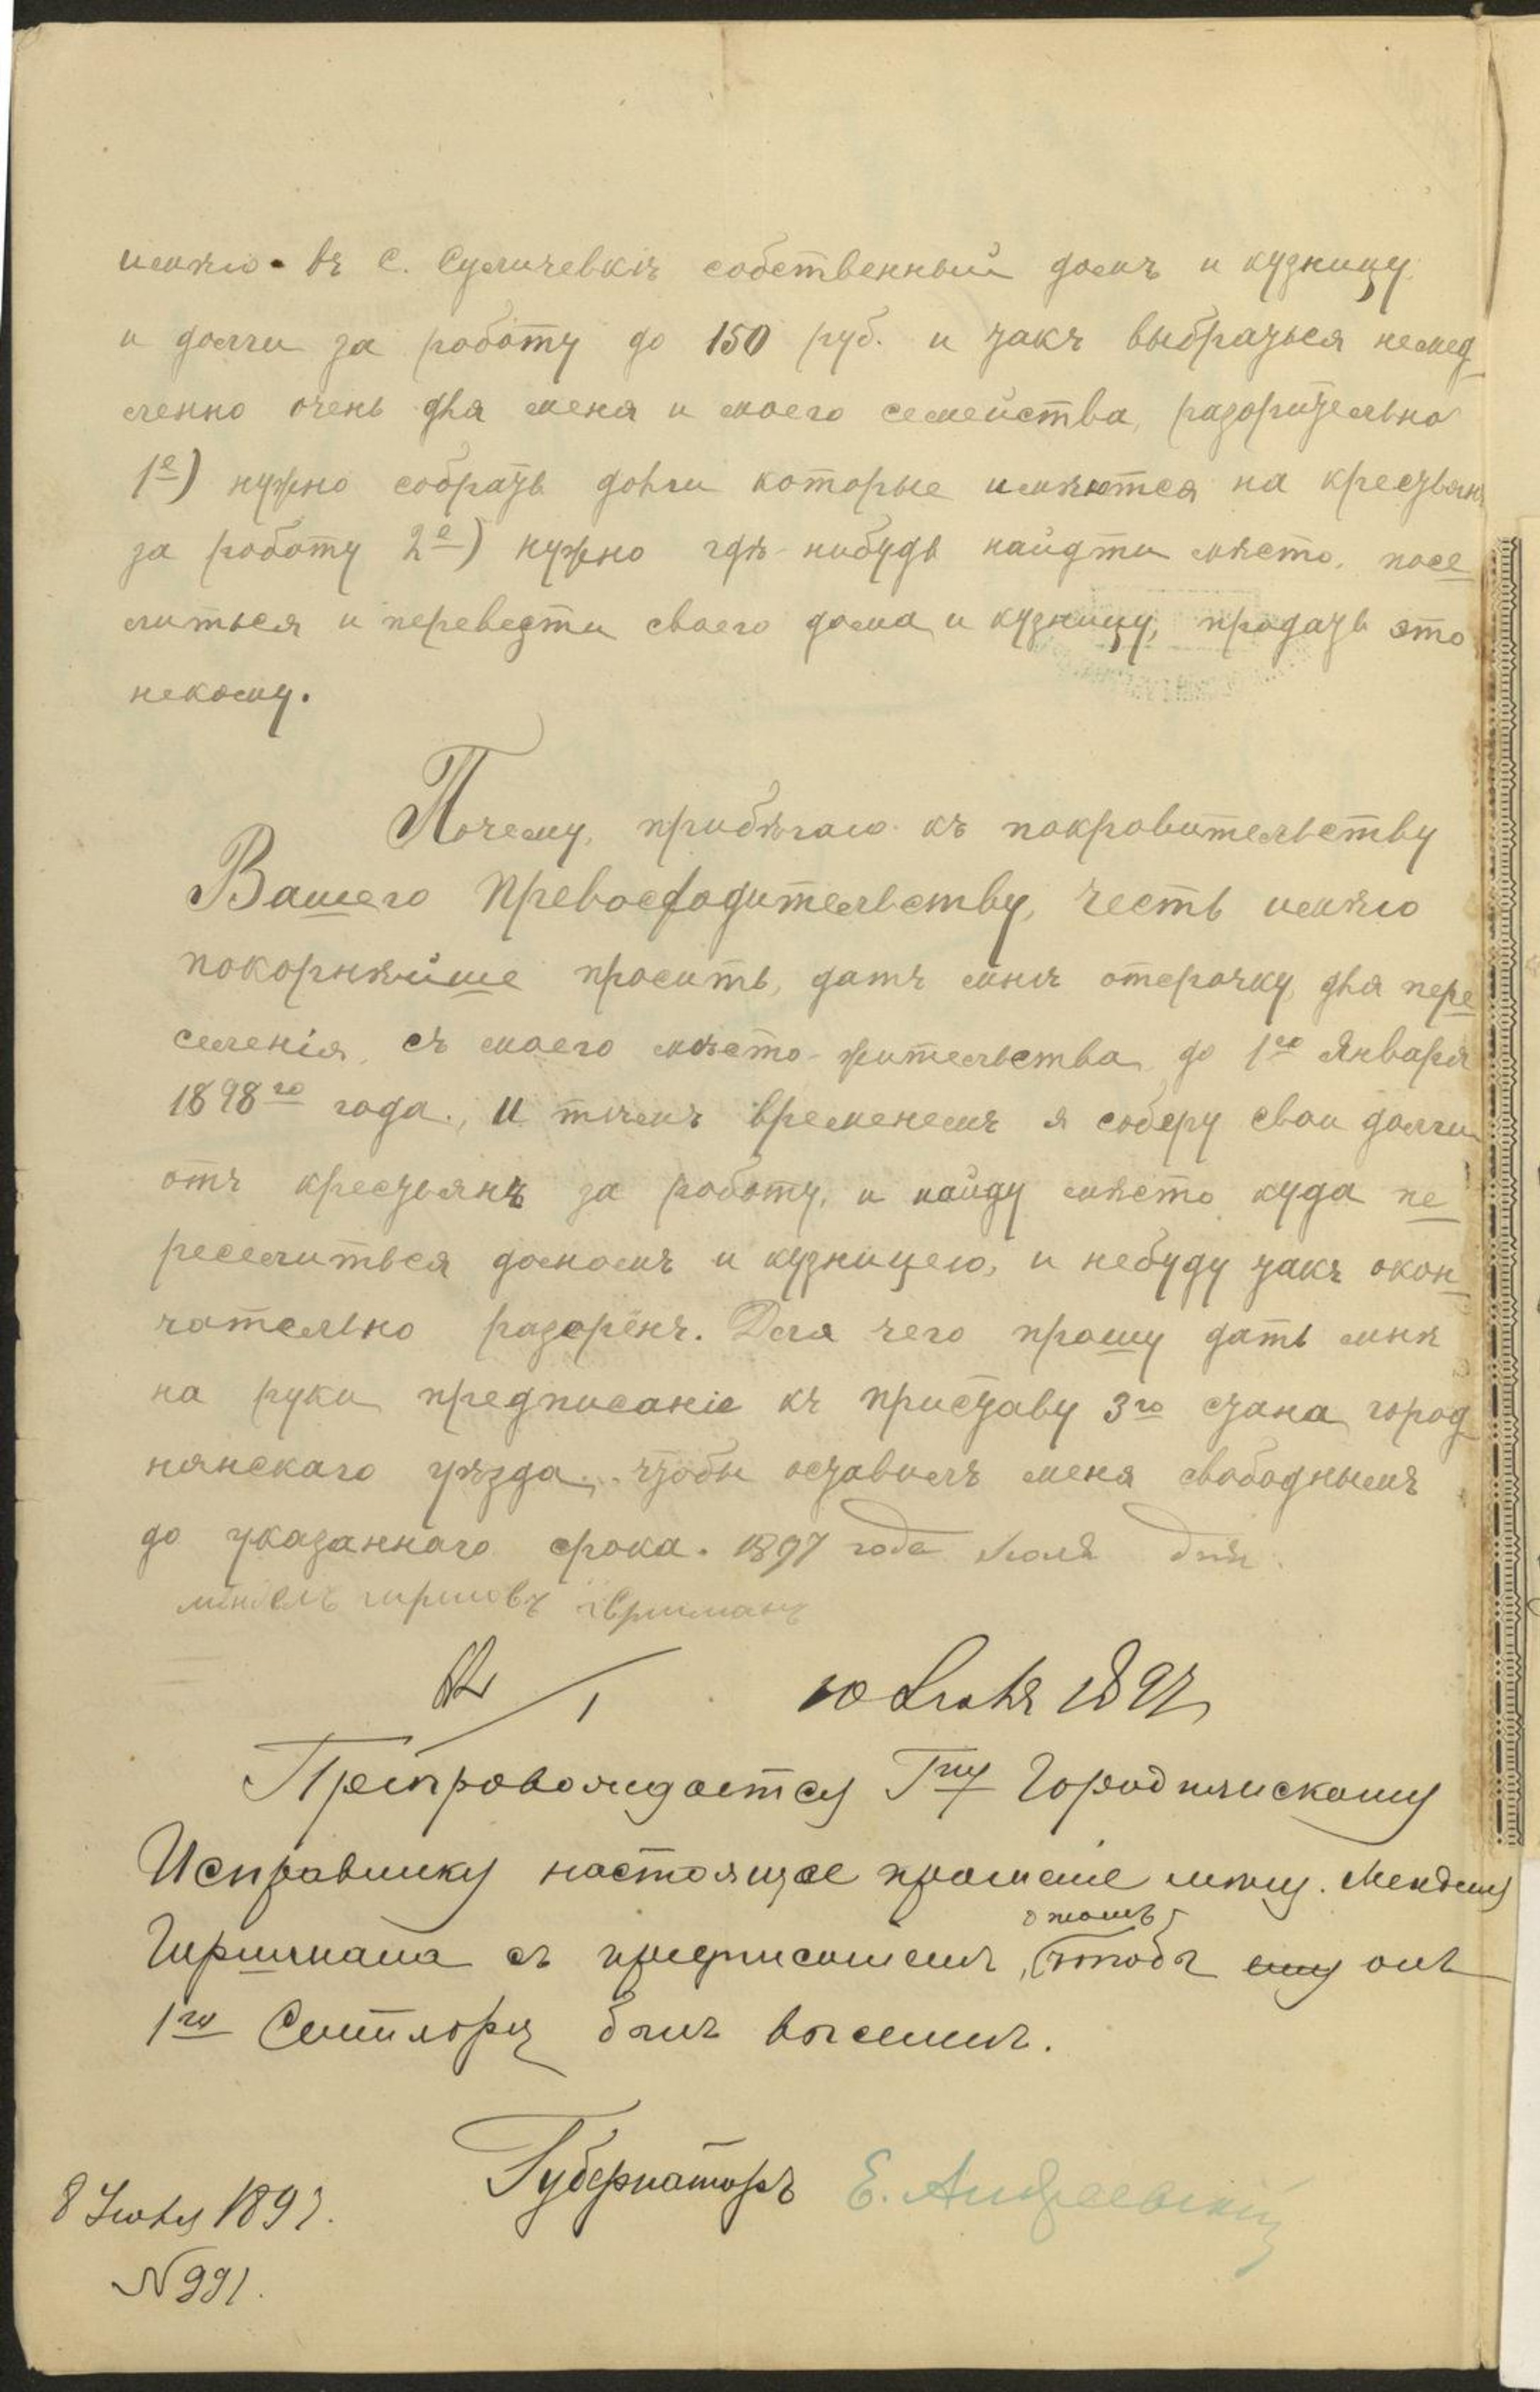 имѣю въ с. Сумичевкѣ собственный домъ и кузницу
и долги за роботу до 150 руб. и такъ выбраться немед
ленно очень для меня и моего семейства, разорительно
1е) нужно собрать долги которые имѣются на крестьян
за роботу 2е) нужно гдѣ-нибудь найдти мѣсто, посе
литься и перевезти своего дома и кузницу, продать это
некому.
Почему, прибѣгаю къ покровительству
Вашего Превосходительству, честь имѣю
покорнѣйше просить, датъ мнѣ отсрочку для пере
селенія, съ моего мѣсто-жительства до 1го Января
1898го года., И тѣмъ временемъ я соберу свои долги
отъ крестьянъ за роботу, и найду мѣсто куда пе
реселиться домомъ и кузницею, и небуду такъ окон
чательно разорёнъ. Для чего прошу дать мнѣ
на руки предписаніе къ приставу 3го стана город
нянскаго уѣзда, чтобы оставилъ меня свободнымъ
до указаннаго срока. 1897 года Июля дня.
10 Июля 1897
Препровождается Гну Городнянскому
Исправнику настоящее прошеніе мѣщ. Менделя
Гиршмана съ предписаніемъ, о томъ чтобы ему онъ
1го Сентября былъ выселенъ.
Губернаторъ Е. Андреевскій
8 Июля 1897.
N 991.